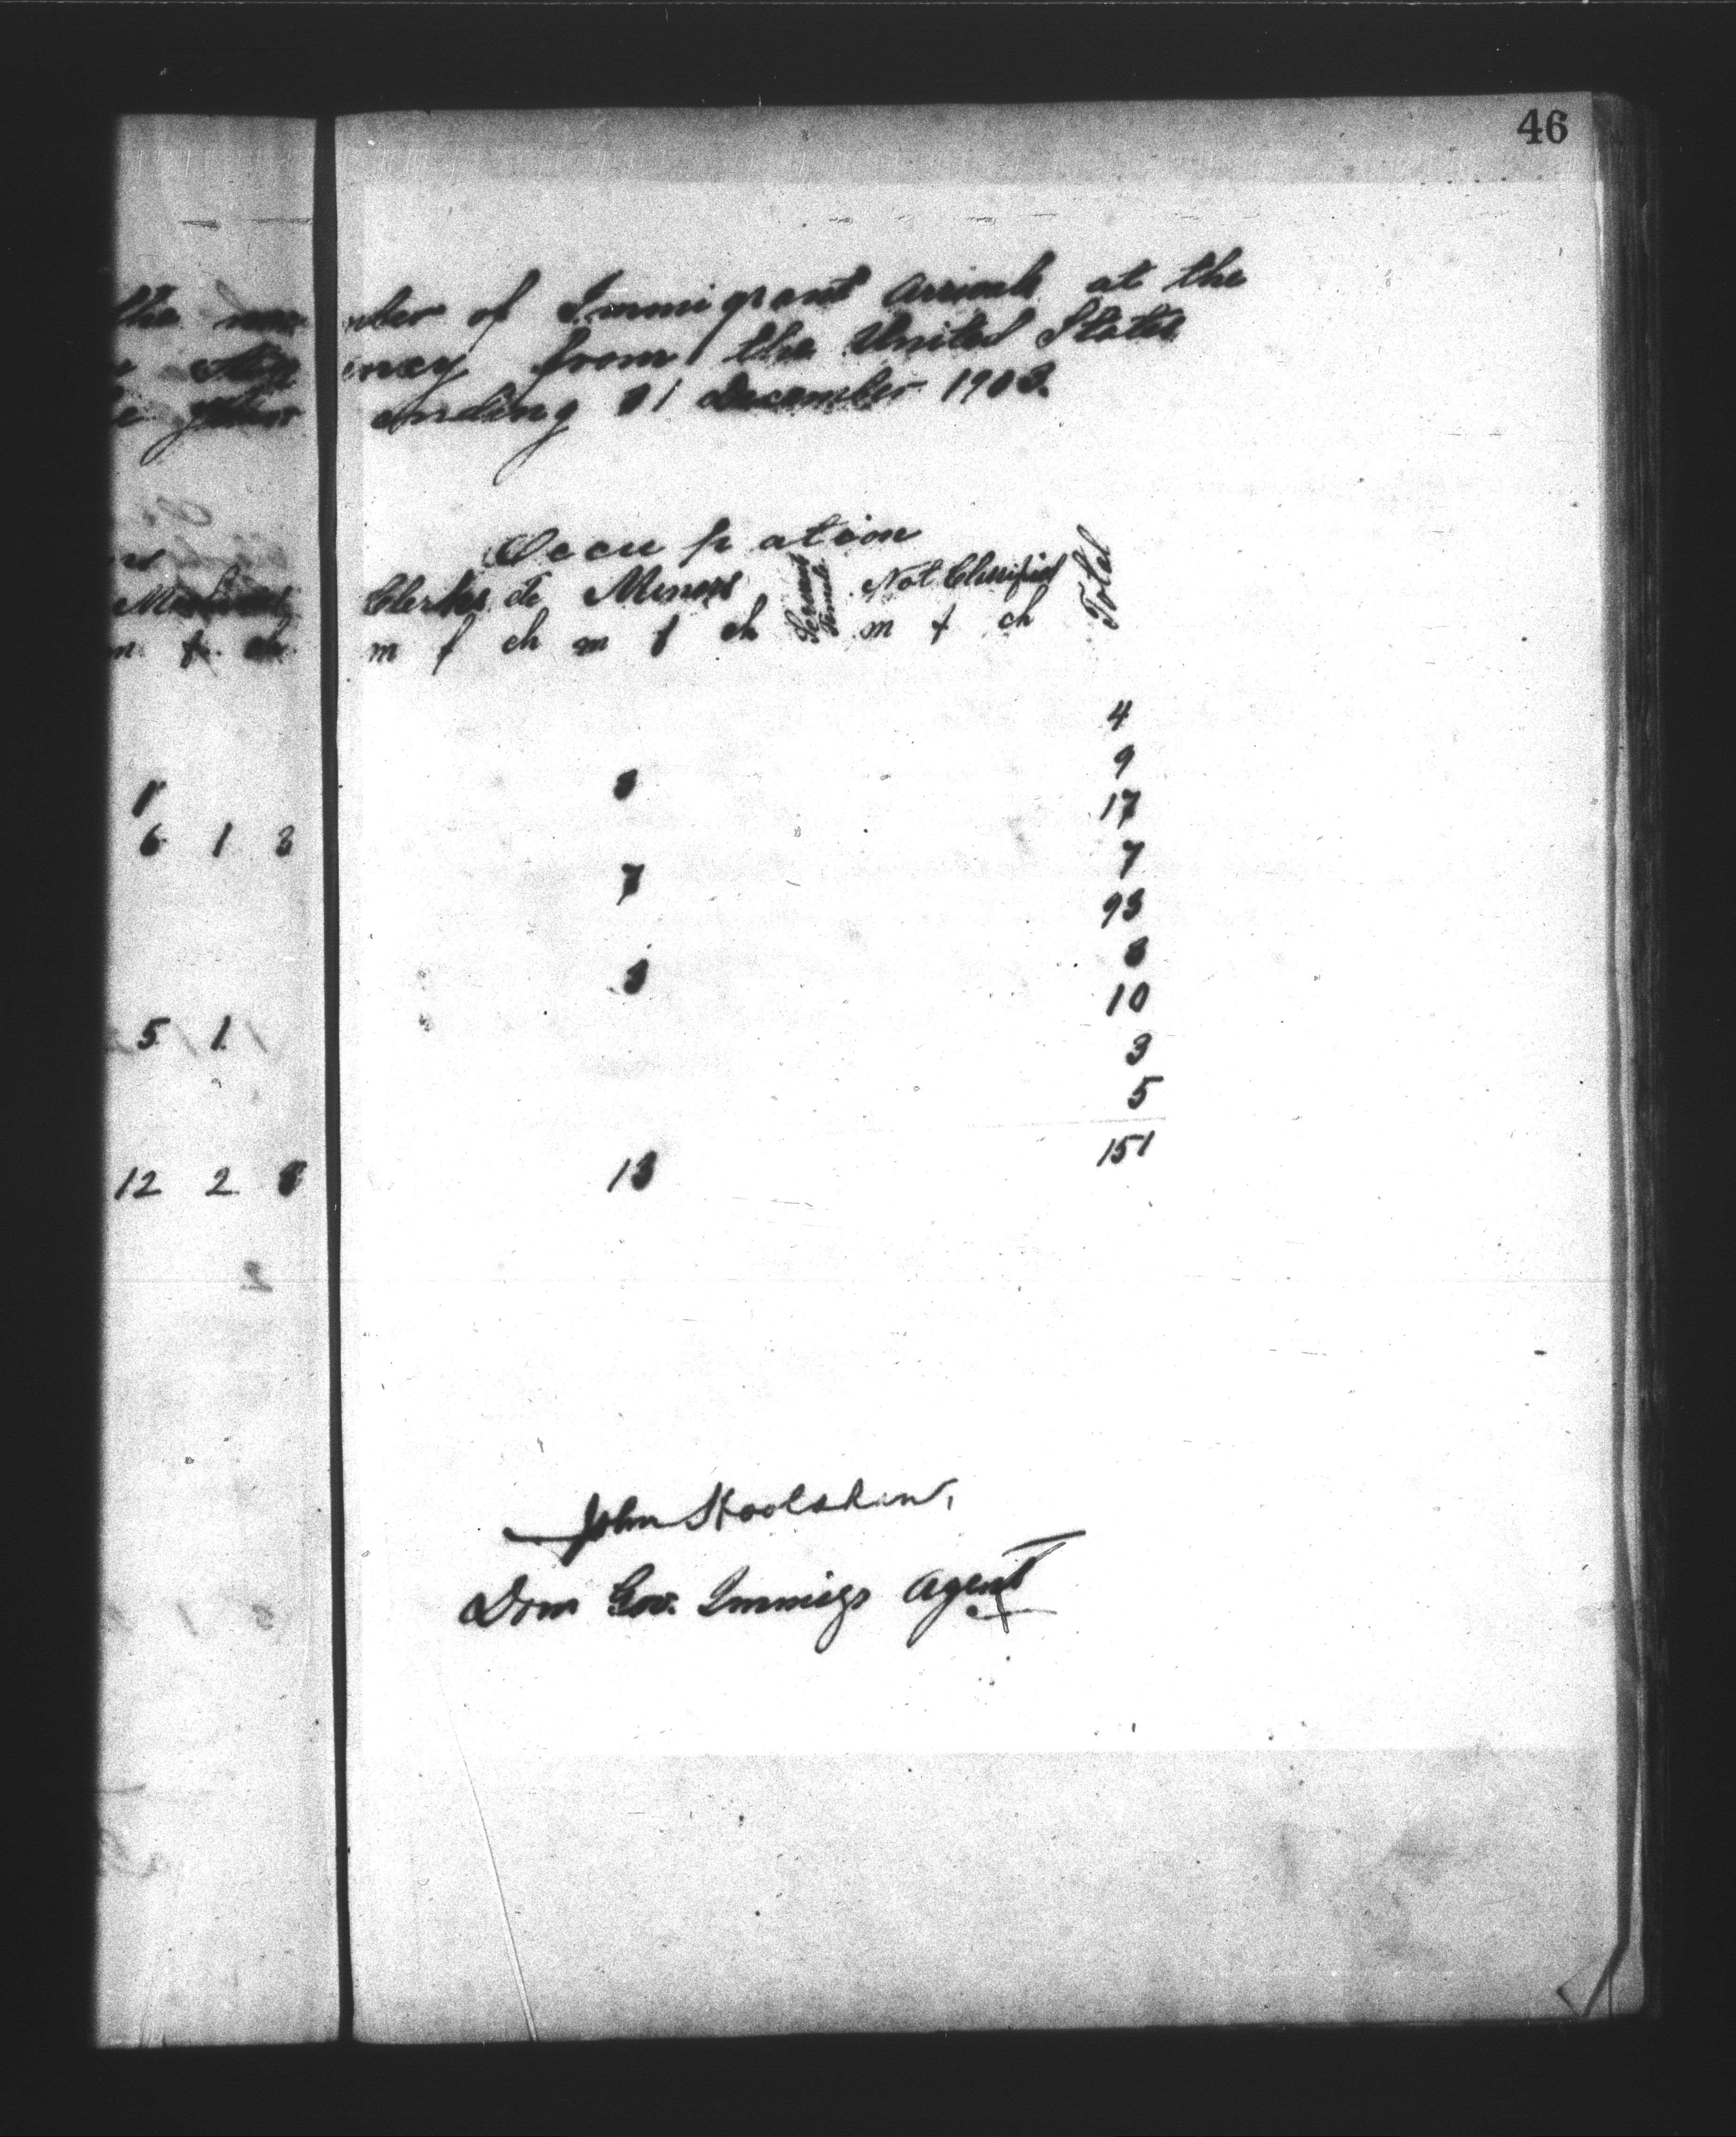 46
the number of Immigrant arrivals at the
Agency from the United States
year ending 31 December 1903.
Occupation
Mechanics Clerks &c Miners Female Servants Not Classified Total
m f ch m f ch m f ch m f ch
4
9
1 3
17
6 1 3
7
7
93
3
3
10
5 1
3
5
151
12 2 3 13
John
Dom Gov. Immigr Agent